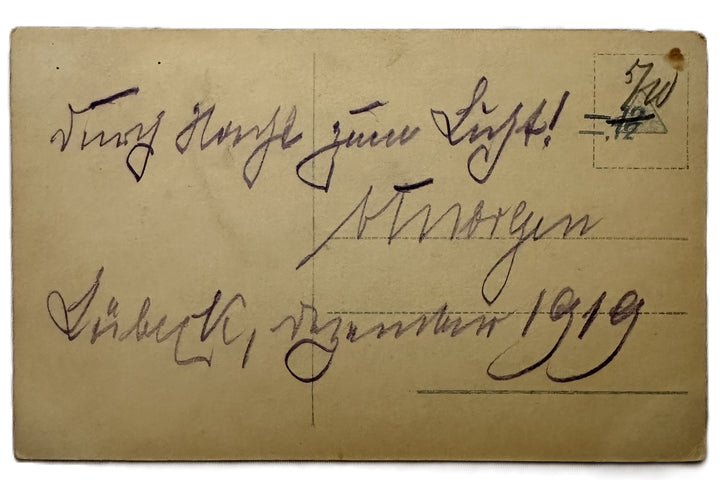 5/W
-.12
Durch Nacht zum Licht!
Morgen
Lübeck, Dezember 1919